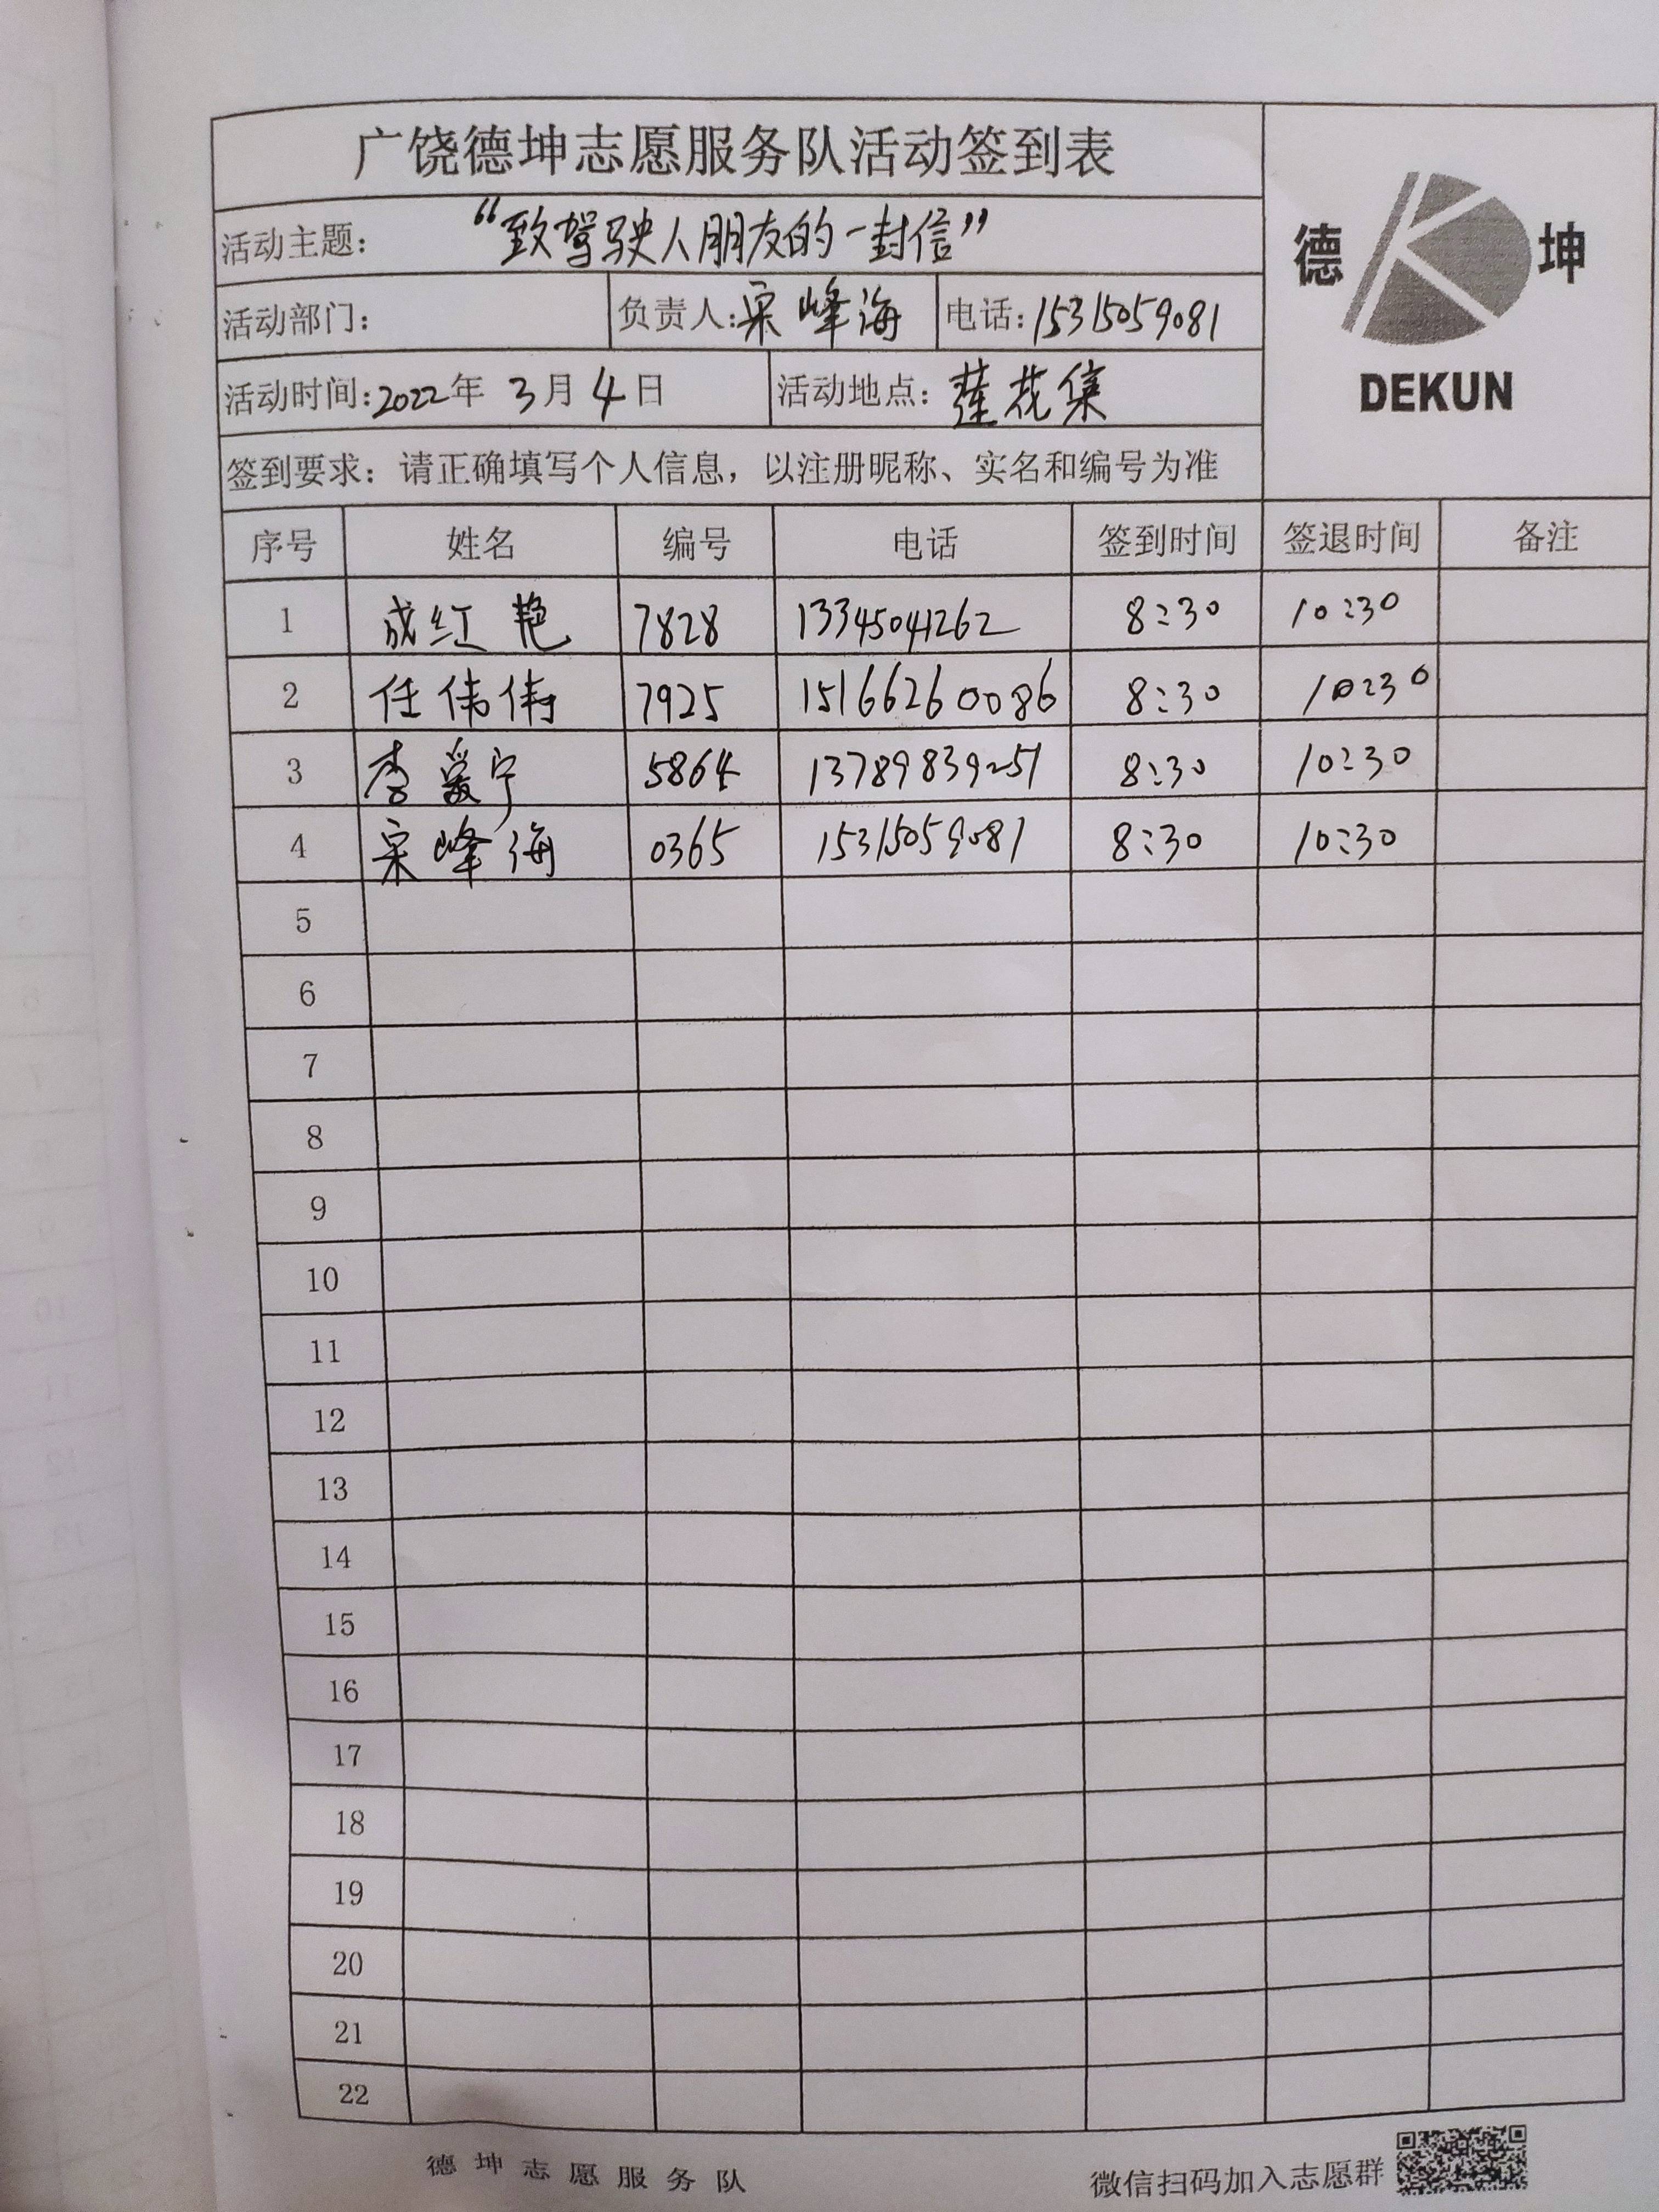 广饶德坤志愿服务队活动签到表
德 坤
DEKUN
活动主题： “致驾驶人朋友的一封信”
活动部门： 负责人：宋峰海 电话：15315059081
活动时间：2022年 3月 4日 活动地点：莲花集
签到要求：请正确填写个人信息，以注册昵称、实名和编号为准
序号 姓名 编号 电话 签到时间 签退时间 备注
1 成红艳 7828 13345041262 8:30 10:30
2 任伟伟 7925 15166260086 8:30 10:30
3 李爱宁 5864 13789839251 8:30 10:30
4 宋峰海 0365 15315059081 8:30 10:30
5
6
7
8
9
10
11
12
13
14
15
16
17
18
19
20
21
22
德坤志愿服务队 微信扫码加入志愿群